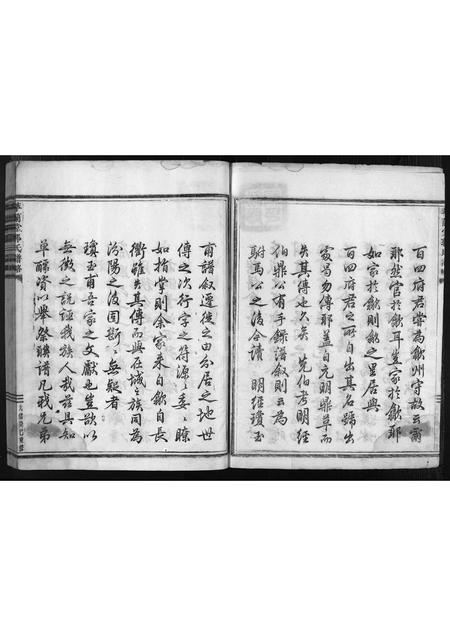 百四府君嘗為歙州守故云爾
那然官於歙耳豈家於歙耶
如家於歙則歙之里居與
百四府君之所自出其名歸出
處曷勿傳耶蓋自元明鼎革而
失其傳也久矣 先伯考明經
伯鼎公有手錄譜叙則云為
駙馬公之後合讀 明經瓊玉
甫譜叙遷徙之由分居之地世
傳之次行字之符源源委委瞭
如指掌則余家來自歙自長
衢雖失其傳而與在城之族同為
汾陽之後固斷斷無疑者
瓊玉甫吾家之文獻也豈欲以
無徵之說誣我族人哉茲具知
單醵資以舉祭聯譜凡我兄弟